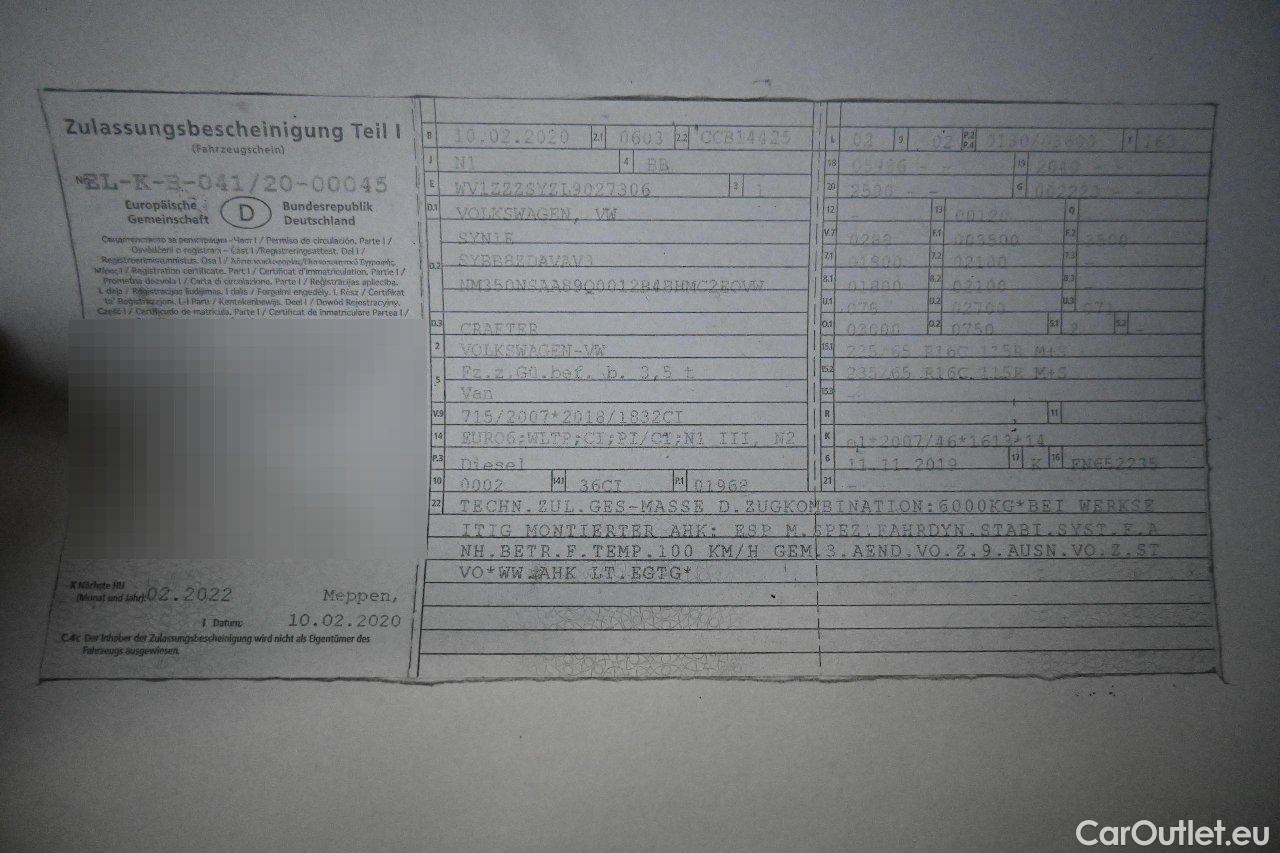 Zulassungsbescheinigung Teil I
(Fahrzeugschein)
Nr. EL-K-B-041/20-00045
Europäische Gemeinschaft
D
Bundesrepublik Deutschland
Свидетелство за регистрация - Част I / Permiso de circulación. Parte I /
Osvědčení o registraci - Část I / Registreringsattest. Del I /
Mönec I / Registration certificate. Part I / Certificat d'immatriculation. Partie I /
Prometna dozvola I / Carta di circolazione. Parte I / Reģistrācijas apliecība.
X Nächste HU
(Monat und Jahr): 02.2022
Meppen,
I Datum: 10.02.2020
C.4c Der Inhaber der Zulassungsbescheinigung wird nicht als Eigentümer des
Fahrzeugs ausgewiesen.
B 10.02.2020 2.1 0603 2.2 CCB14425
J N1 4 BB
E WV1ZZZSYZL9027306 3 1
D.1 VOLKSWAGEN, VW
SYN1E
D.2 SYBB8ZDAVAV3
D.3 CRAFTER
2 VOLKSWAGEN-VW
5 Fz.z.Gü.bef. b. 3,5 t
Van
V.9 715/2007*2018/1832CI
14 EURO6;WLTP;CI;PI/CI;N1 III, N2
P.3 Diesel
10 0002 14.1 36CI P.1 01968
L 02 9 02 P.2 P.4 0130/03600 T 163
18 05986 - - 19 2040 - -
20 2590 - - G 002223 - -
12 13 00120 Q
V.7 0288 F.1 003500 F.2 3500
7.1 01800 7.2 02100 7.3 -
8.1 01800 8.2 02100 8.3
U.1 078 U.2 02700 U.3 071
O.1 03000 O.2 0750 S.1 2 S.2 -
15.1 235/65 R16C 115R M+S
15.2 235/65 R16C 115R M+S
15.3
R 11
K e1*2007/46*1613*14
6 11.11.2019 17 K 16 FN652235
21 -
22 TECHN.ZUL.GES-MASSE D.ZUGKOMBINATION:6000KG*BEI WERKSE
ITIG MONTIERTER AHK: ESP M.SPEZ.FAHRDYN.STABI.SYST.F.A
NH.BETR.F.TEMP.100 KM/H GEM.3.AEND.VO.Z.9.AUSN.VO.Z.ST
VO*WW.AHK LT.EGTG*
CarOutlet.eu